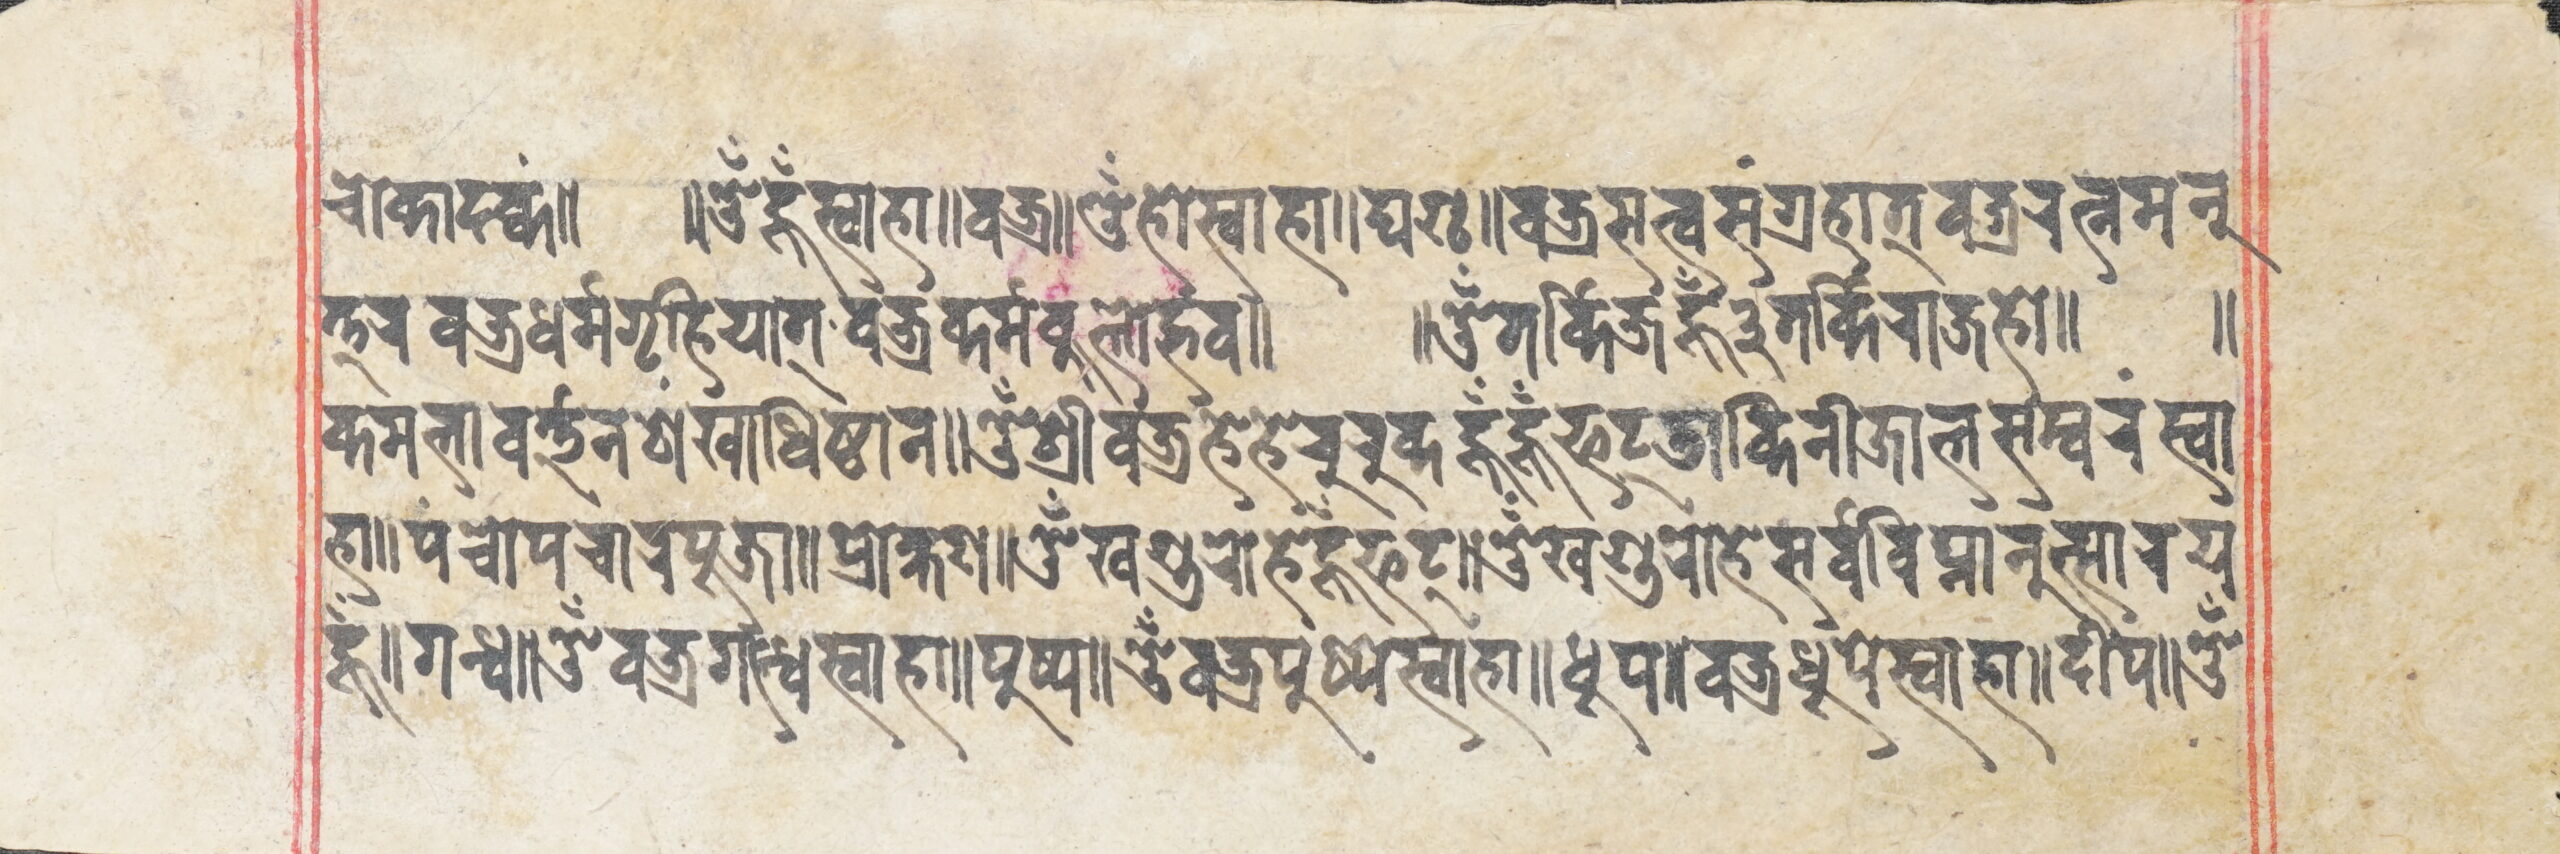 चोकादकं॥ ॥ॐ हूँ स्वाहा॥वज्र॥ॐ होस्वाहा॥घण्ठ॥वज्रसत्वसंग्रहात् वज्ररत्नमनू
त्तर वज्रधर्मगृहियात् वज्रकर्मकुलोद्भव॥ ॥ॐ तर्किर्ज हूँ ३ तर्किराजहो॥ ॥
कमलावर्त्तनशंखाधिष्ठान॥ॐ श्रीवज्रहेहेरुरुक हूँ हूँ फट् डाकिनीजालसम्वरं स्वा
हा॥पंचोपचारपुजा॥प्रोक्षण॥ॐ खण्डरोहे हूँ फट्॥ॐ खण्डरोहेसर्वविघ्नानुत्सारय
हूँ॥गन्ध॥ॐ वज्रगन्धेस्वाहा॥पुष्प॥ॐ वज्रपुष्पेस्वाहा॥धूप॥वज्रधूपेस्वाहा॥दीप॥ॐ